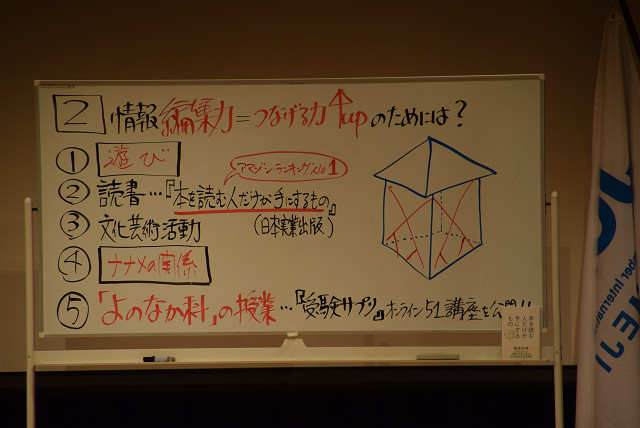 2 情報編集力=つなげる力↑upのためには?
① 遊び
アマゾンランキングNo1
② 読書…『本を読む人だけが手にするもの』
③ 文化芸術活動
(日本実業出版)
④ ナナメの関係
⑤ 「よのなか科」の授業…『受験サプリ』オンライン51講座を公開!!
本を読む
人だけが
手にする
もの